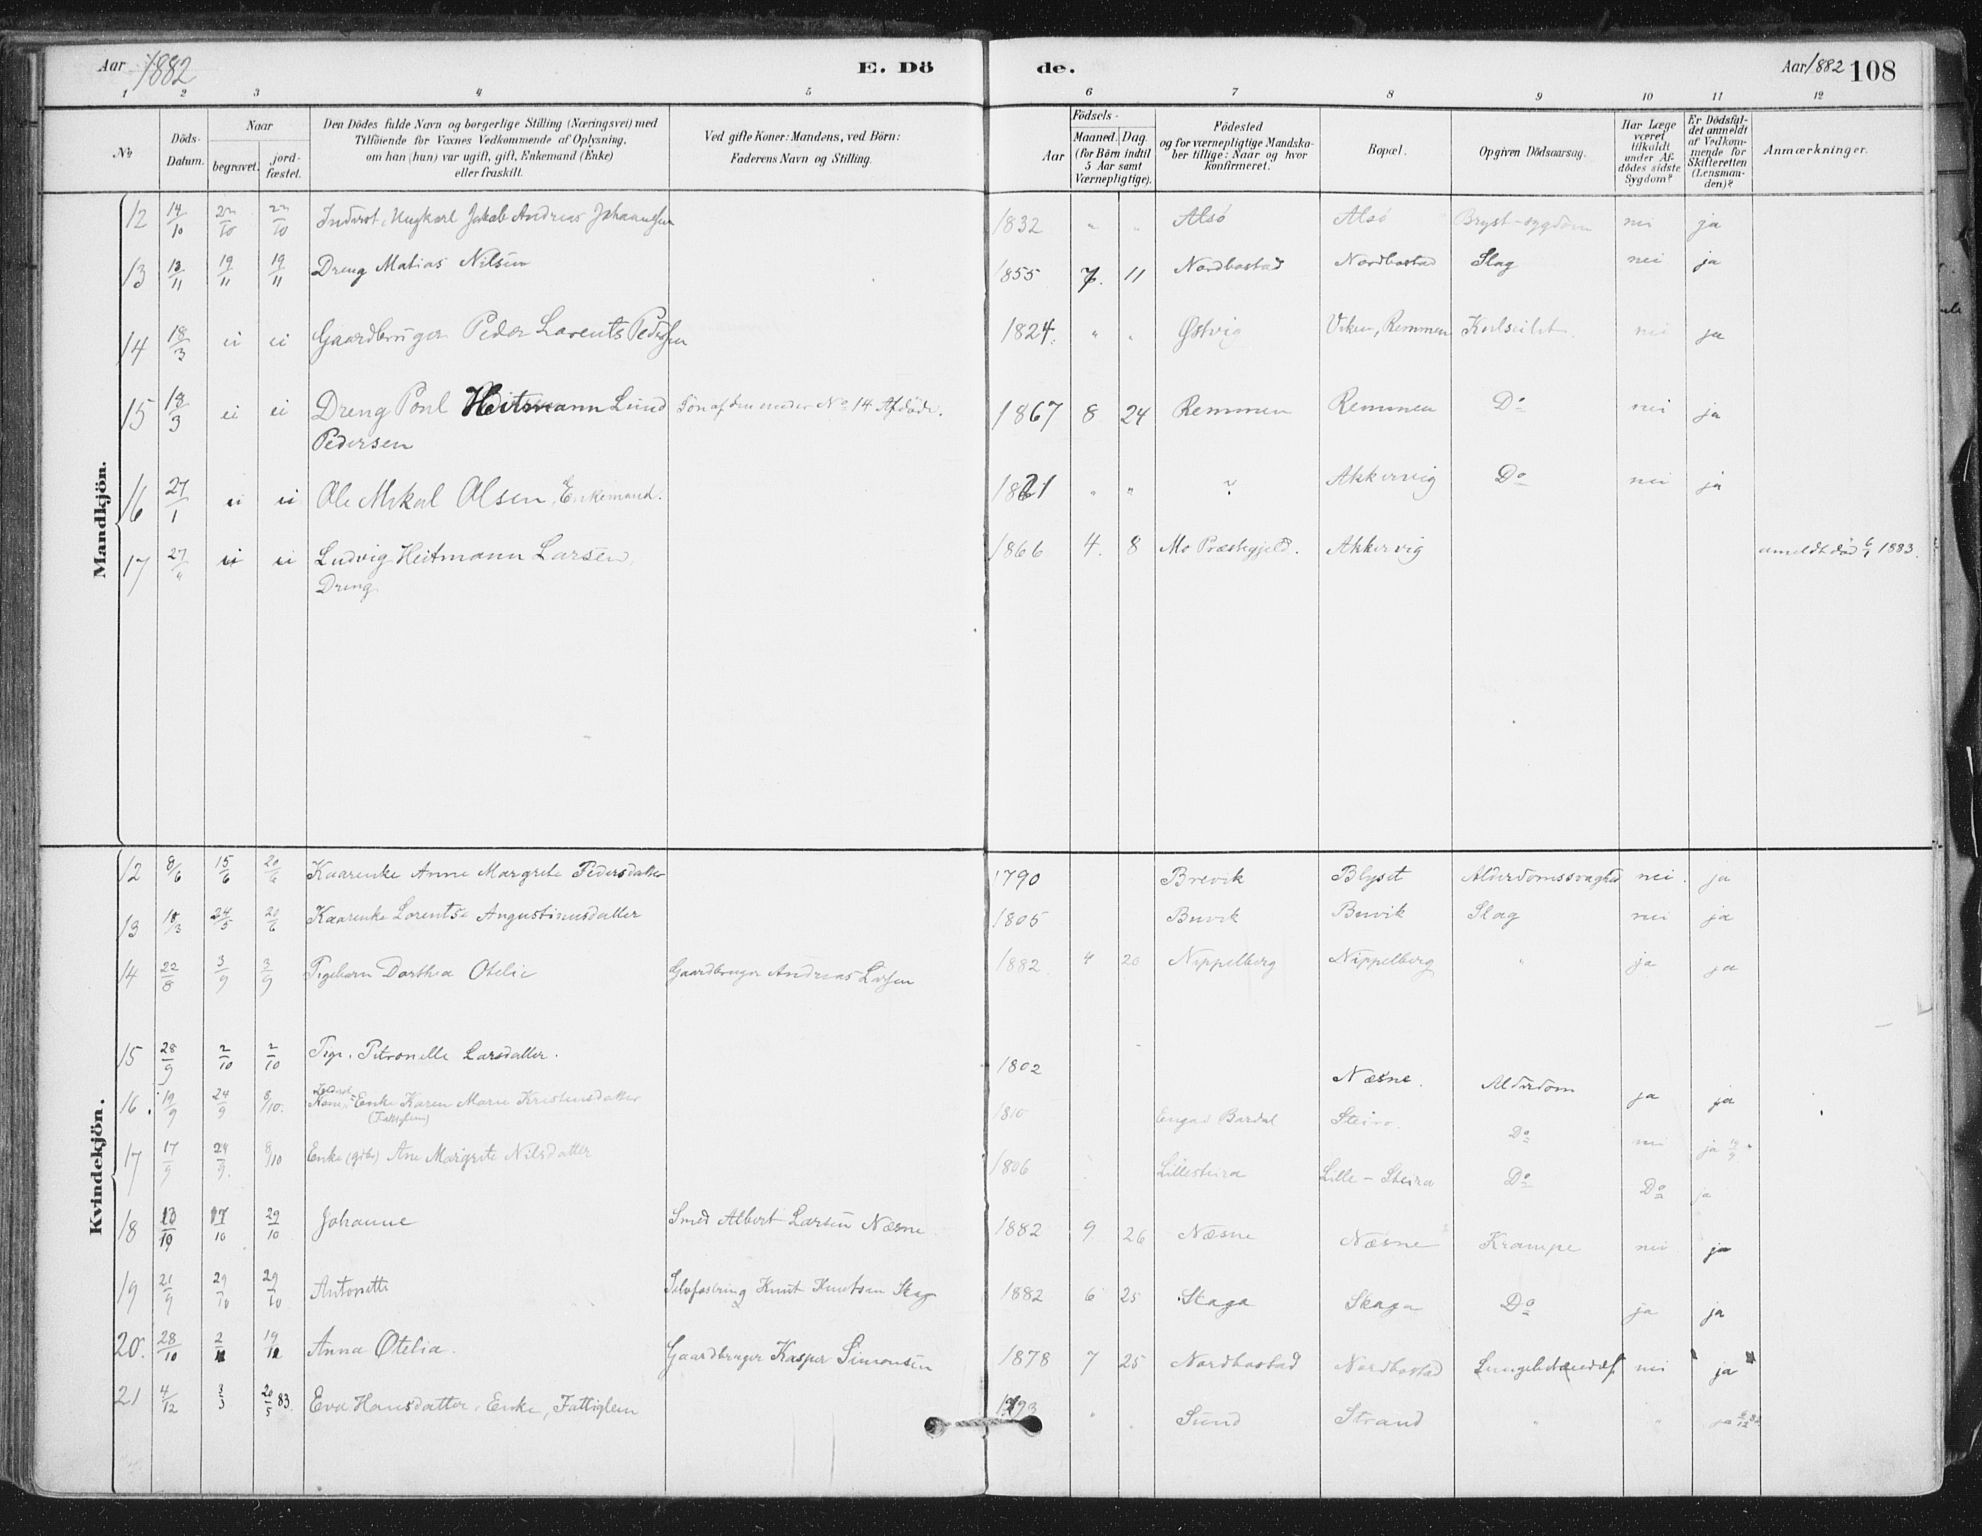 Aar 1882 E. Dö de. Aar 1882 108
1 2 3 4 5 6 7 8 9 10 11 12
No Döds-Datum. Naar begravet. jordfæstet. Den Dödes fulde Navn og borgerlige Stilling (Næringsvei) med Tilföiende for Voxnes Vedkommende af Oplysning, om han (hun) var ugift, gift, Enkemand (Enke) eller fraskilt. Ved gifte Koner: Mandens, ved Börn: Faderens Navn og Stilling. Födsels- Aar Maaned. Dag. (for Börn indtil 5 Aar samt Værnepligtige). Födested og for værnepligtige Mandskaber tillige: Naar og hvor konfirmeret. Bopæl. Opgiven Dödsaarsag. Har Læge været tilkaldt under Afdödes sidste Sygdom? Er Dödsfaldet anmeldt af Vedkommende for Skifteretten (Lensmanden)? Anmærkninger.
Mandkjön.
12 14/10 22/10 22/10 Inderst, Ungkarl Jakob Andreas Johannessen 1832 " " Alsö Alsö Bryst-sygdom nei ja
13 13/11 19/11 19/11 Dreng Matias Nilsen 1855 7. 11 Nordbostad Nordbostad Slag nei ja
14 18/3 ei ei Gaardbruger Peder Lorents Pedersen 1824. " " Østvig Viken, Remmen Kulseilet. nei ja
15 18/3 ei ei Dreng Poul Heitmann Lund Sön af den under No 14 Afdöde. 1867 8 24 Remmen Remmen Do nei ja
Pedersen
16 27/1 ei ei Ole Mikal Olsen, Enkemand. 1821 " " ? Akkervig Do nei ja
17 27/" ei ei Ludvig Heitmann Larsen, 1866 4. 8 Mo Præstegjeld. Akkervig anmeldt död 6/1 1883.
Dreng
Kvindekjön.
12 8/6 15/6 20/6 Kaarenke Anne Margrete Pedersdatter 1790 Brevik Blyset Alderdomssvaghed nei. ja
13 18/3 24/5 20/6 Kaarenke Lorentse Angustinusdatter 1805 Buvik Buvik Slag nei ja
14 22/8 3/9 3/9 Pigebarn Dorthea Otelie Gaardbruger Andreas Larsen 1882. 4 20 Nippelberg Nippelberg " ja ja
15 28/9 2/10 2/10 Pige. Petronelle Larsdatter. 1802 Næsne. Alderdom ja ja
16. 19/9 24/9 8/10. Enke Karen Marie Kristensdatter 1810 Engad Bardal Steiro. Do nei ja
(Fattiglem)
17 17/9 24/9. 8/10 Enke (gdb) Ane Margrete Nilsdatter 1806 Lillesteira Lille-Steira Do Do ja
18 13/10 17/10 29/10 Johanne Smed Albert Larsen Næsne 1882 9 26 Næsne Næsne Krampe nei ja
19 21/9 29/10 29/10 Antonette Selvfostring Knut Knutsen Skag 1882 6 25 Skaga Skaga Do ja ja
20. 28/10 2/11 19/12 Anna Otelia. Gaardbruger Kasper Simonsen 1878 7 25 Nordbostad Nordbostad nei ja
21 4/12 3/3 20/5 83 Eva Hansdatter, Enke, Fattiglem 1793 " " Sund Strand " " ja 6/12 82